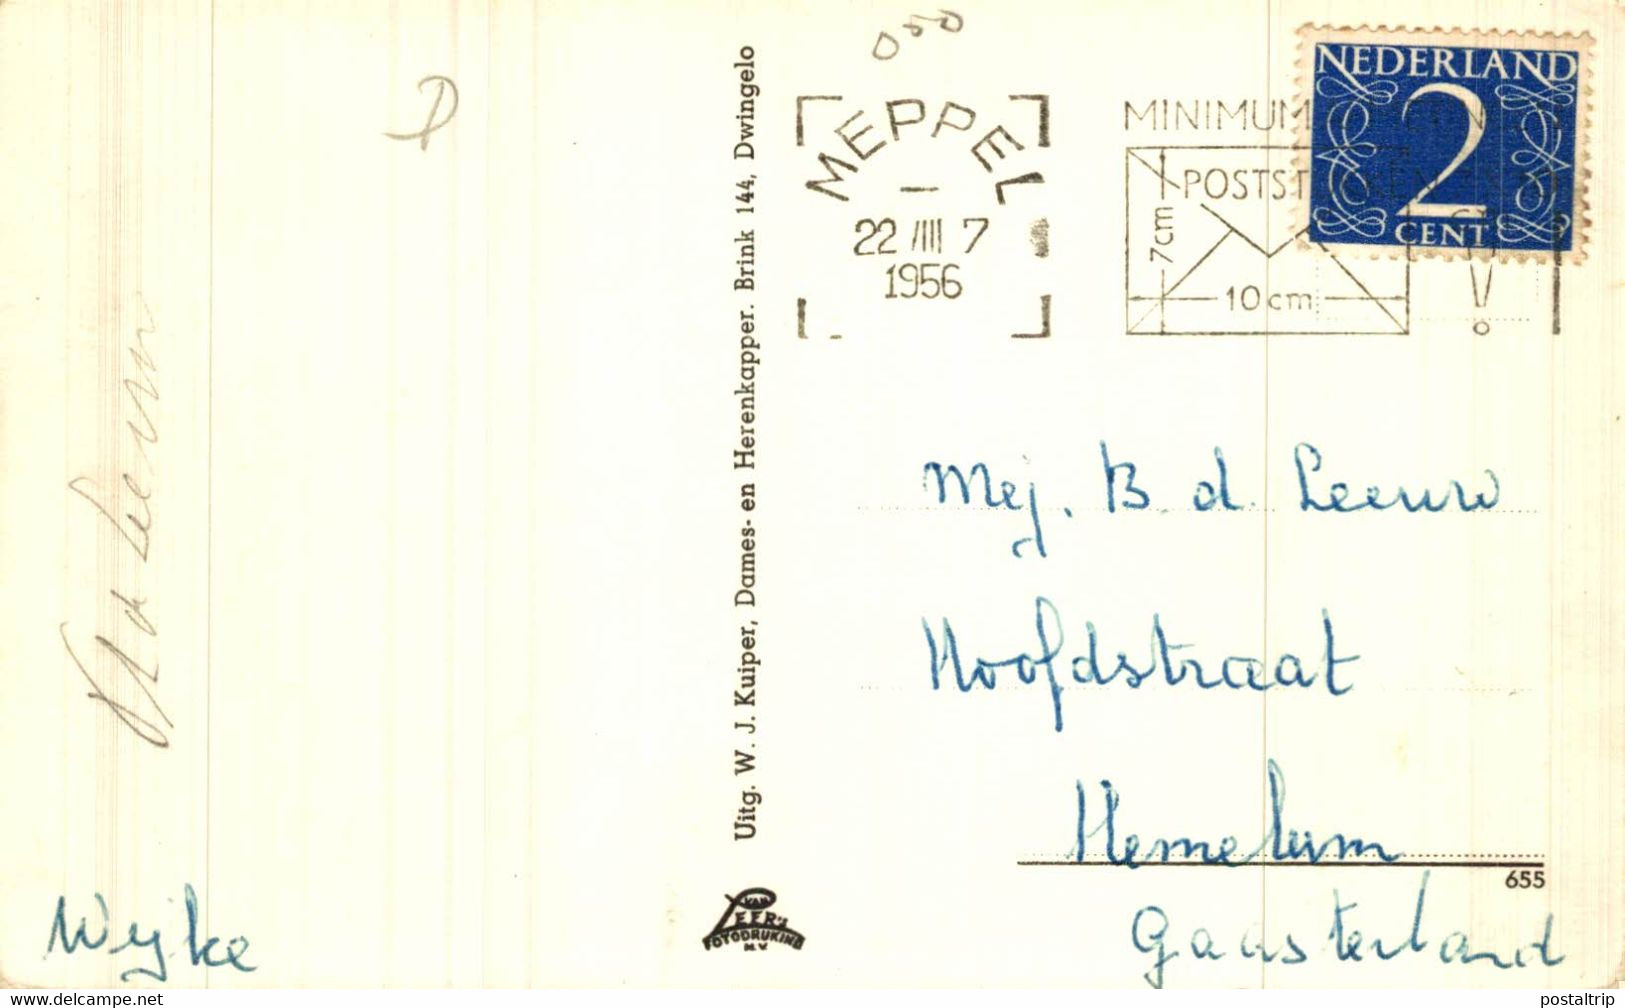 MEPPEL
22 /III 7
1956
MINIMUM
POSTST
7cm
10cm
NEDERLAND
2
CENT
Uitg. W. J. Kuiper, Dames- en Herenkapper. Brink 144, Dwingelo
Mej. B. d. Leeuw
Hoofdstraat
Hemelum
Gaasterland
655
VAN
LEER's
FOTODRUKIND
N.V.
Wijke
www.delcampe.net
postaltrip